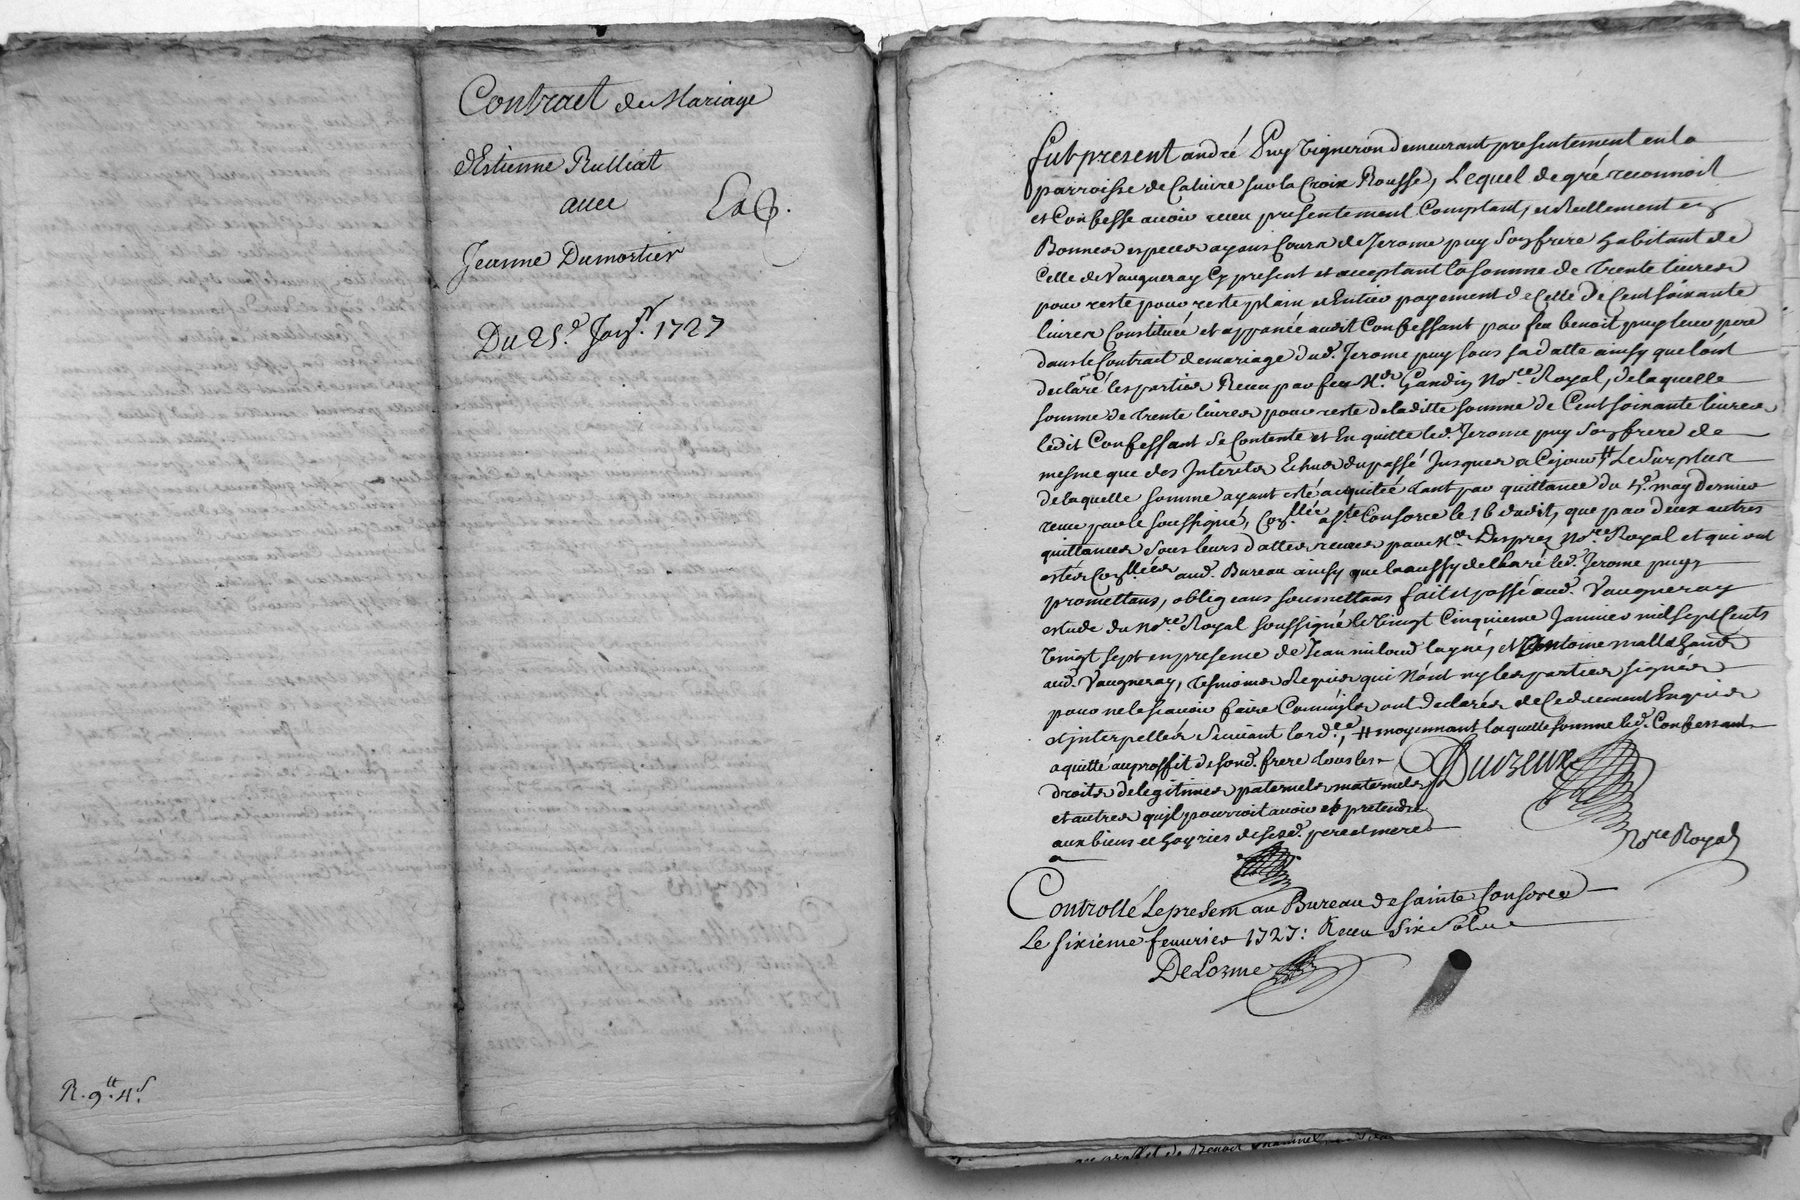 Contract de Mariage
d'Estienne Rulliat
avec
Exp.
Jeanne Dumortier
Du 25e Janr. 1727
R. 9tt. 4s.
fut present andré Puy vigneron demeurant presentement en la
parroisse de Caluire sur la Croix Rousse, Lequel de gré reconnoit
et Confesse avoir receu presentement Comptant, et Reellement en
Bonnes especes ayans Cours de Jerome puy Son frere habitant de
Celle de Vaugneray Cy present et acceptant la somme de trente livres
pour reste pour reste plain et Entier payement de Celle de Cent soixante
livres Constituée et appanée audit Confessant par feu benoit puy leur pere
dans le Contrat de mariage dud. Jerome puy sous sa datte ainsy que l'ont
declaré les parties Receu par feu Me. Gandin Nore. Royal, de laquelle
somme de trente livres pour reste de laditte somme de Cent soixante livres
ledit Confessant se Contente et En quitte led. Jerome puy Son frere de
mesme que des Interets Echus du passé Jusques a Ce jour # Le Surplus
de laquelle somme ayant esté acquitée tant par quittance du 4e. may Dernier
receue par le soussigné, Conllée a Ste Consorce le 16 dudit, que par deux autres
quittances sous leurs dattes receues par Me. Desprez Nore. Royal et qui ont
estés Conllées aud. Bureau ainsy que la aussy declaré led. Jerome puy
promettans, obligeans soumettans fait et passé aud. Vaugneray
estude du Nore. Royal soussigné le vingt Cinquieme Janvier mil sept Cents
vingt sept en presence de Jean miloud layné, et Antoine malla
aud. Vaugneray, tesmoins Requis qui N'ont ny les parties signés
pour ne le scavoir faire Comm'ils ont declarés de Ce deuement Enquis
et interpellés Suivant l'ordce, # moyennant laquelle somme led. Confessant
a quitté au proffit de sond. frere tous les
droits de legitimes paternels maternels
et autres qu'il pourroit avoir et pretendre
aux biens et hoyries de sesd. pere et mere
Duvzeux
Nore Royal
Controllé Le present au Bureau de sainte Consorce
Le sixième fevurier 1727: Receu Six Sols
DeLorme
au proffit de Benoit